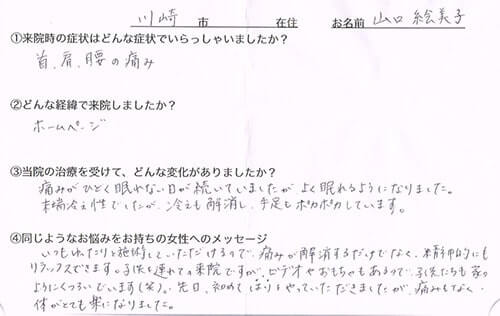 川崎 市 在住 お名前 山口 絵美子
①来院時の症状はどんな症状でいらっしゃいましたか？
首、肩、腰の痛み
②どんな経緯で来院しましたか？
ホームページ
③当院の治療を受けて、どんな変化がありましたか？
痛みがひどく眠れない日が続いていましたが、よく眠れるようになりました。
末端冷え性でしたが、冷えも解消し、手足もポカポカしています。
④同じようなお悩みをお持ちの女性へのメッセージ
いつもゆったりと施術していただけるので、痛みが解消するだけでなく、精神的にも
リラックスできます。子供を連れての来院ですが、ビデオやおもちゃもあるので、子供たちも家の
ようにくつろいでいます(笑)。先日、初めてはりをやっていただきましたが、痛みもなく、
体がとても楽になりました。